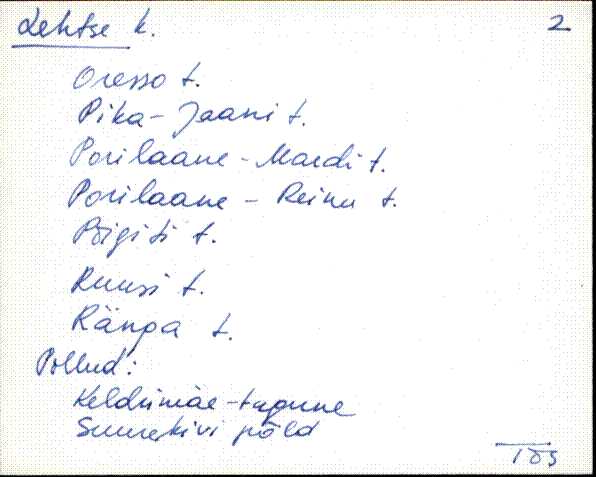 Lehtse k. 2
Oresso t.
Pika-Jaani t.
Porilaane-Mardi t.
Porilaane - Reinu t.
Pôigiti t.
Ruusi t.
Ränga t.
Põllud:
Keldrimäe-tagune
Suurekivi põld
103